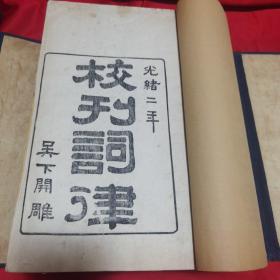 光緒二年
校刊詞律
吳下開雕